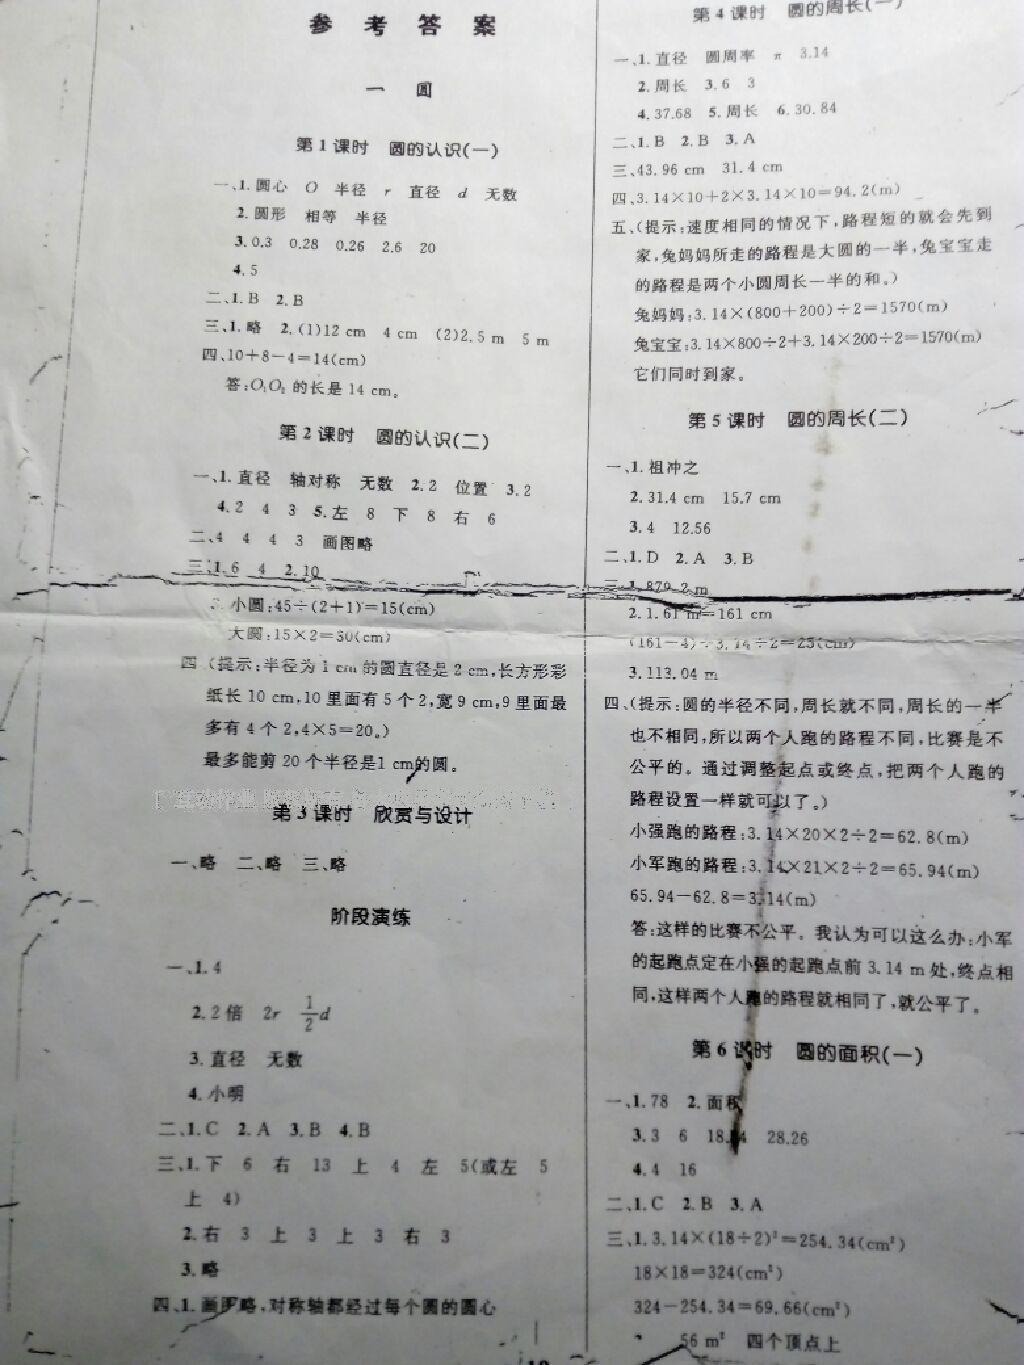 参考答案
一 圆
第1课时 圆的认识(一)
一、1.圆心 O 半径 r 直径 d 无数
2.圆形 相等 半径
3.0.3 0.28 0.26 2.6 20
4.5
二、1.B 2.B
三、1.略 2.(1)12 cm 4 cm (2)2.5 m 5 m
四、10+8-4=14(cm)
答:O₁O₂的长是14 cm。
第2课时 圆的认识(二)
一、1.直径 轴对称 无数 2.2 位置 3.2
4.2 4 3 5.左 8 下 8 右 6
二、4 4 4 3 画图略
三、1.6 4 2.10
小圆:45÷(2+1)=15(cm)
大圆:15×2=30(cm)
四、(提示:半径为1 cm的圆直径是2 cm,长方形彩
纸长10 cm,10里面有5个2,宽9 cm,9里面最
多有4个2,4×5=20。)
最多能剪20个半径是1 cm的圆。
第3课时 欣赏与设计
一、略 二、略 三、略
阶段演练
一、1.4
2.2倍 2r 1/2d
3.直径 无数
4.小明
二、1.C 2.A 3.B 4.B
三、1.下 6 右 13 上 4 左 5(或左 5
上 4)
2.右 3 上 3 上 3 右 3
3.略
四、1.画图略,对称轴都经过每个圆的圆心
第4课时 圆的周长(一)
一、1.直径 圆周率 π 3.14
2.周长 3.6 3
4.37.68 5.周长 6.30.84
二、1.B 2.B 3.A
三、43.96 cm 31.4 cm
四、3.14×10+2×3.14×10=94.2(m)
五、(提示:速度相同的情况下,路程短的就会先到
家,兔妈妈所走的路程是大圆的一半,兔宝宝走
的路程是两个小圆周长一半的和。)
兔妈妈:3.14×(800+200)÷2=1570(m)
兔宝宝:3.14×800÷2+3.14×200÷2=1570(m)
它们同时到家。
第5课时 圆的周长(二)
一、1.祖冲之
2.31.4 cm 15.7 cm
3.4 12.56
二、1.D 2.A 3.B
三、1.879.2 m
2.1.61 m=161 cm
(161-4)÷3.14÷2=25(cm)
3.113.04 m
四、(提示:圆的半径不同,周长就不同,周长的一半
也不相同,所以两个人跑的路程不同,比赛是不
公平的。通过调整起点或终点,把两个人跑的
路程设置一样就可以了。)
小强跑的路程:3.14×20×2÷2=62.8(m)
小军跑的路程:3.14×21×2÷2=65.94(m)
65.94-62.8=3.14(m)
答:这样的比赛不公平。我认为可以这么办:小军
的起跑点定在小强的起跑点前3.14 m处,终点相
同,这样两个人跑的路程就相同了,就公平了。
第6课时 圆的面积(一)
一、1.78 2.面积
3.3 6 18.84 28.26
4.4 16
二、1.C 2.B 3.A
三、1.3.14×(18÷2)²=254.34(cm²)
18×18=324(cm²)
324-254.34=69.66(cm²)
56 m² 四个顶点上